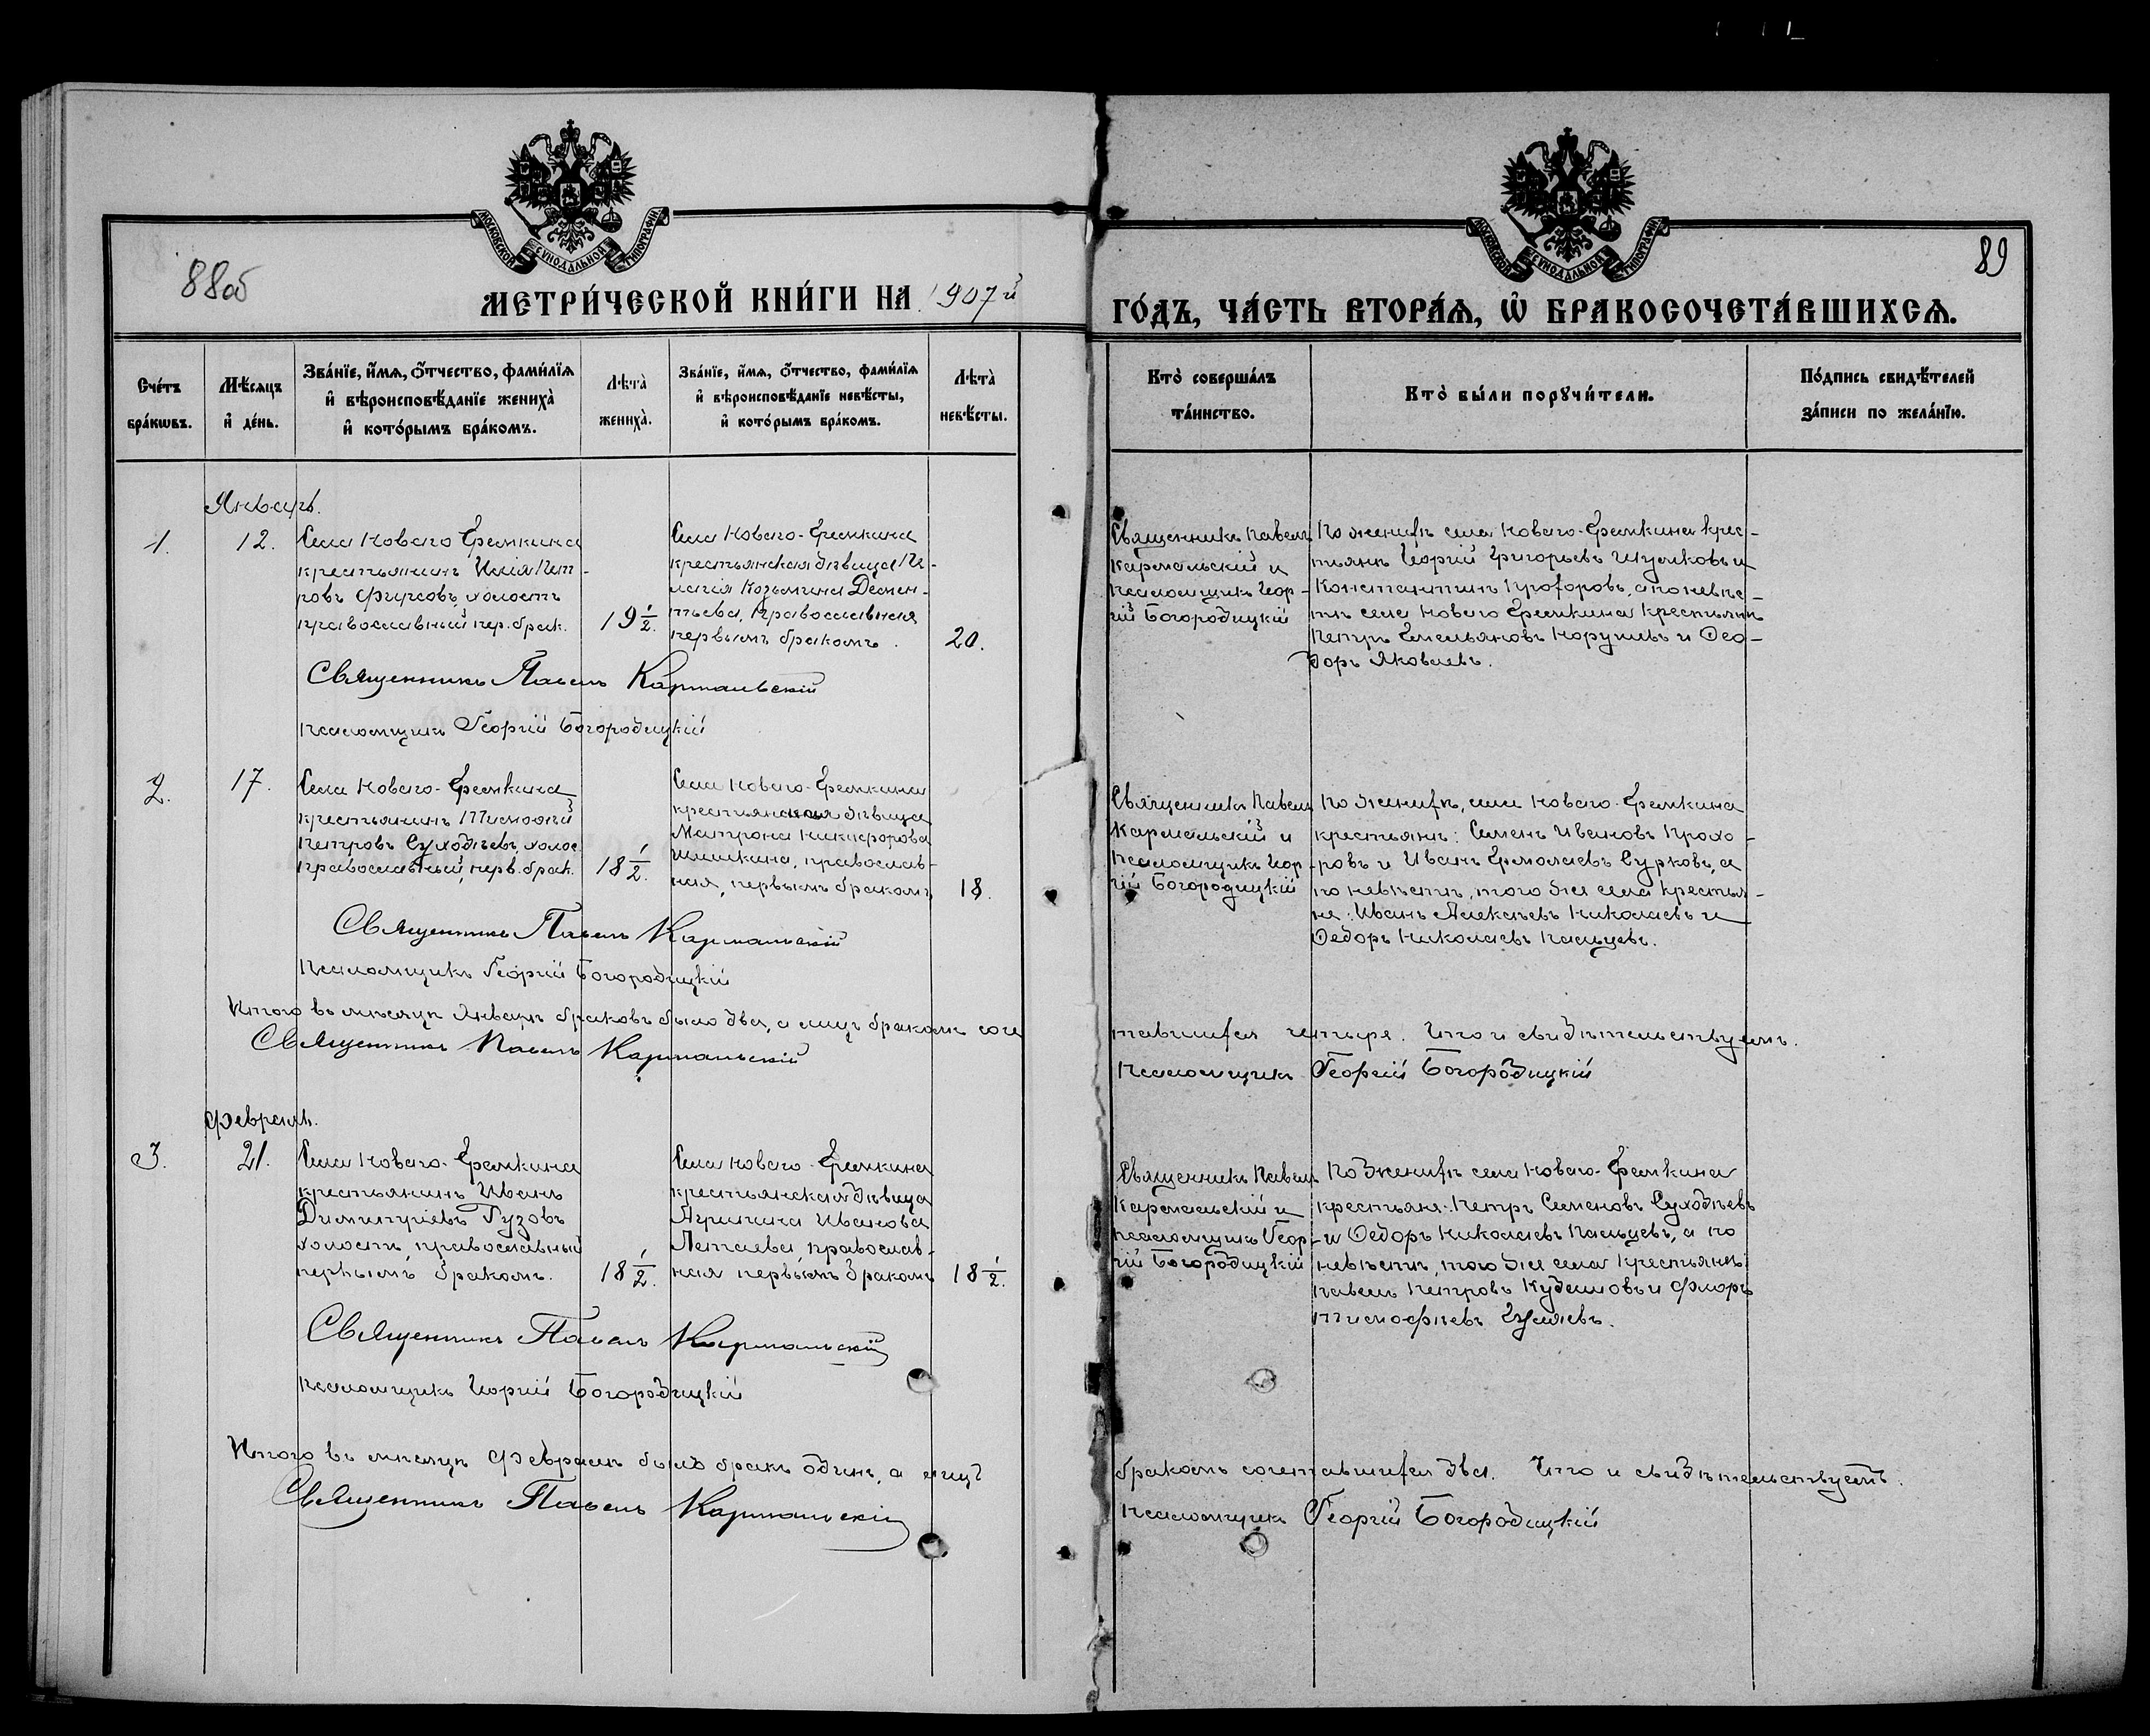 МОСКОВСКОЙ СѴНОДАЛЬНОЙ ТИПОГРАФІИ
МОСКОВСКОЙ СѴНОДАЛЬНОЙ ТИПОГРАФІИ
88об
89
МЕТРИ́ЧЕСКОЙ КНИ́ГИ НА 1907й
ГО́ДЪ, ЧА́СТЬ ВТОРА́Ѧ, Ѡ҆ БРАКОСОЧЕТА́ВШИХСѦ.
Сче́тъ бра́кѡвъ.
Мѣ́сѧцъ и҆ де́нь.
Зва́нїе, и҆́мѧ, ѻ҆́тчество, фами́лїѧ и҆ вѣроисповѣ́данїе жениха̀ и҆ кото́рымъ бра́комъ.
Лѣта̀ жениха̀.
Зва́нїе, и҆́мѧ, ѻ҆́тчество, фами́лїѧ и҆ вѣроисповѣ́данїе невѣ́сты, и҆ кото́рымъ бра́комъ.
Лѣта̀ невѣ́сты.
Кто̀ соверша́лъ та́инство.
Кто̀ бы́ли порꙋчи́тели.
По́дпись свидѣ́телей за́писи по жела́нїю.
Январь.
1.
12.
Села Новаго Еремкина
крестьянинъ Илія Пет-
ровъ Фирсовъ, холостъ
православный пер. брак.
19 1/2.
Села Новаго-Еремкина
крестьянская дѣвица Пе-
лагія Козьмина Демен-
тьева, православная
первымъ бракомъ.
20.
Священникъ Павелъ
Кармальскій и
псаломщикъ Геор-
гій Богородицкій
По женихѣ села Новаго-Еремкина крес-
тьяне Георгій Григорьевъ Шумковъ и
Константинъ Прохоровъ, а по невѣс-
тѣ села Новаго Еремкина крестьяне
Петръ Емельяновъ Норушевъ и Ѳео-
доръ Яковлевъ.
Священникъ Павелъ Кармальскій
Псаломщикъ Георгій Богородицкій
2.
17.
Села Новаго-Еремкина
крестьянинъ Тимоѳей
Петровъ Суходѣевъ, холос.
православный, перв. брак.
18 1/2.
Села Новаго-Еремкина
крестьянская дѣвица
Матрона Никифорова
Шишкина, православ-
ная, первымъ бракомъ
18.
Священникъ Павелъ
Кармальскій и
псаломщикъ Геор-
гій Богородицкій
По женихѣ, села Новаго-Еремкина
крестьяне: Семенъ Ивановъ Прохо-
ровъ и Иванъ Ермолаевъ Сурковъ, а
по невѣстѣ, того же села крестья-
не: Иванъ Алексѣевъ Николаевъ и
Ѳедоръ Николаевъ Пальцевъ.
Священникъ Павелъ Кармальскій
Псаломщикъ Георгій Богородицкій
Итого въ мѣсяцѣ Январѣ браковъ было два, а лицъ бракомъ соче
тавшихся четыре. Что и свидѣтельствуемъ.
Священникъ Павелъ Кармальскій
Псаломщикъ Георгій Богородицкій
Февраль.
3.
21.
Села Новаго-Еремкина
крестьянинъ Иванъ
Димитріевъ Гузовъ
холостъ, православный
первымъ бракомъ.
18 1/2.
Села Новаго-Еремкина
крестьянская дѣвица
Агрипина Иванова
Летаева, православ-
ная первымъ бракомъ
18 1/2.
Священникъ Павелъ
Кармальскій и
псаломщикъ Геор-
гій Богородицкій
По женихѣ села Новаго-Еремкина
крестьяне: Петръ Семеновъ Суходѣевъ
и Ѳедоръ Николаевъ Пальцевъ, а по
невѣстѣ, того же села крестьяне:
Павелъ Петровъ Кудашовъ и Флоръ
Тимофѣевъ
Священникъ Павелъ Кармальскій
Псаломщикъ Георгій Богородицкій
Итого въ мѣсяцѣ Февралѣ былъ бракъ одинъ, а лицъ
бракомъ сочетавшихся два. Что и свидѣтельствуемъ.
Священникъ Павелъ Кармальскій
Псаломщикъ Георгій Богородицкій